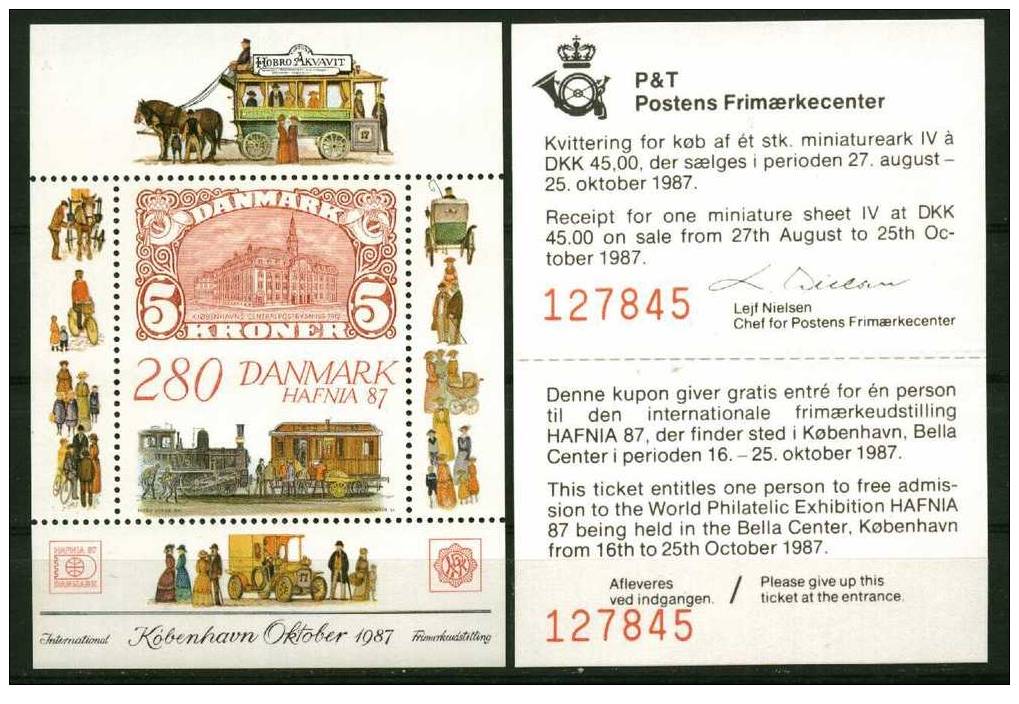 HOBRO AKVAVIT
17
DANMARK
5 5
KJØBENHAVNS CENTRALPOSTBYGNING 1912
KRONER
280 DANMARK
HAFNIA 87
HAFNIA 87
DANMARK
17
International København Oktober 1987 Frimærkeudstilling
P&T
Postens Frimærkecenter
Kvittering for køb af ét stk. miniatureark IV à
DKK 45,00, der sælges i perioden 27. august –
25. oktober 1987.
Receipt for one miniature sheet IV at DKK
45.00 on sale from 27th August to 25th Oc-
tober 1987.
127845
L. Nielsen
Lejf Nielsen
Chef for Postens Frimærkecenter
Denne kupon giver gratis entré for én person
til den internationale frimærkeudstilling
HAFNIA 87, der finder sted i København, Bella
Center i perioden 16. – 25. oktober 1987.
This ticket entitles one person to free admis-
sion to the World Philatelic Exhibition HAFNIA
87 being held in the Bella Center, København
from 16th to 25th October 1987.
Afleveres / Please give up this
ved indgangen. ticket at the entrance.
127845